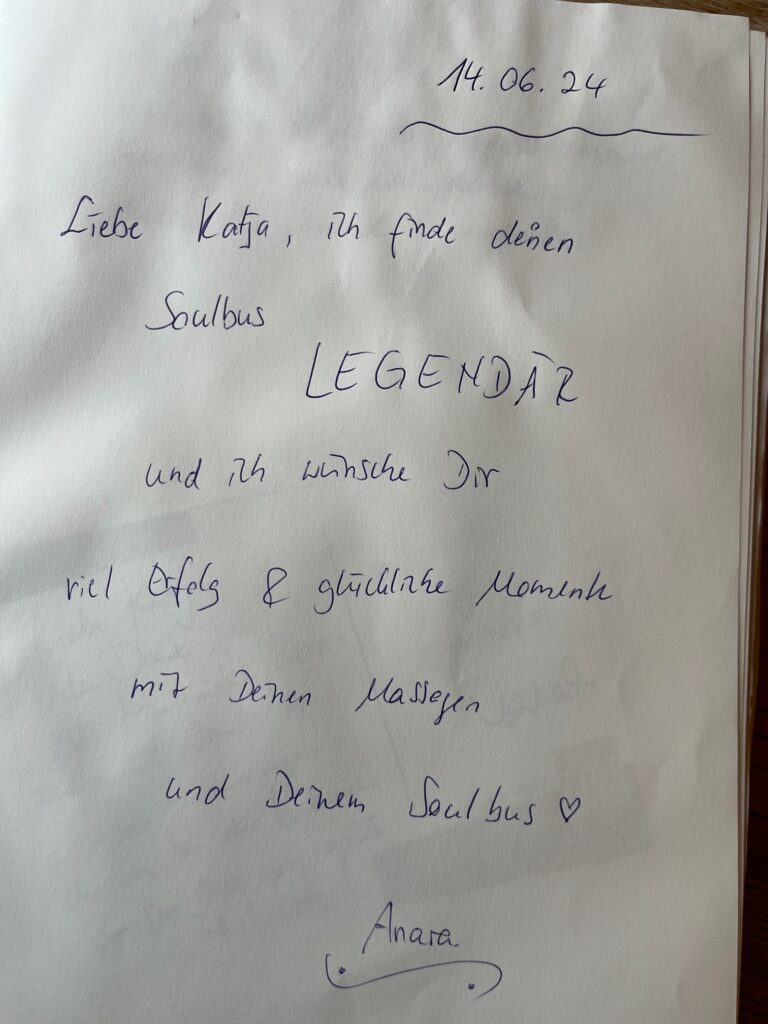 14.06.24
Liebe Katja, ich finde deinen
Soulbus
LEGENDÄR
und ich wünsche Dir
viel Erfolg & glückliche Momente
mit Deinen Massagen
und Deinem Soulbus ♡
Anara